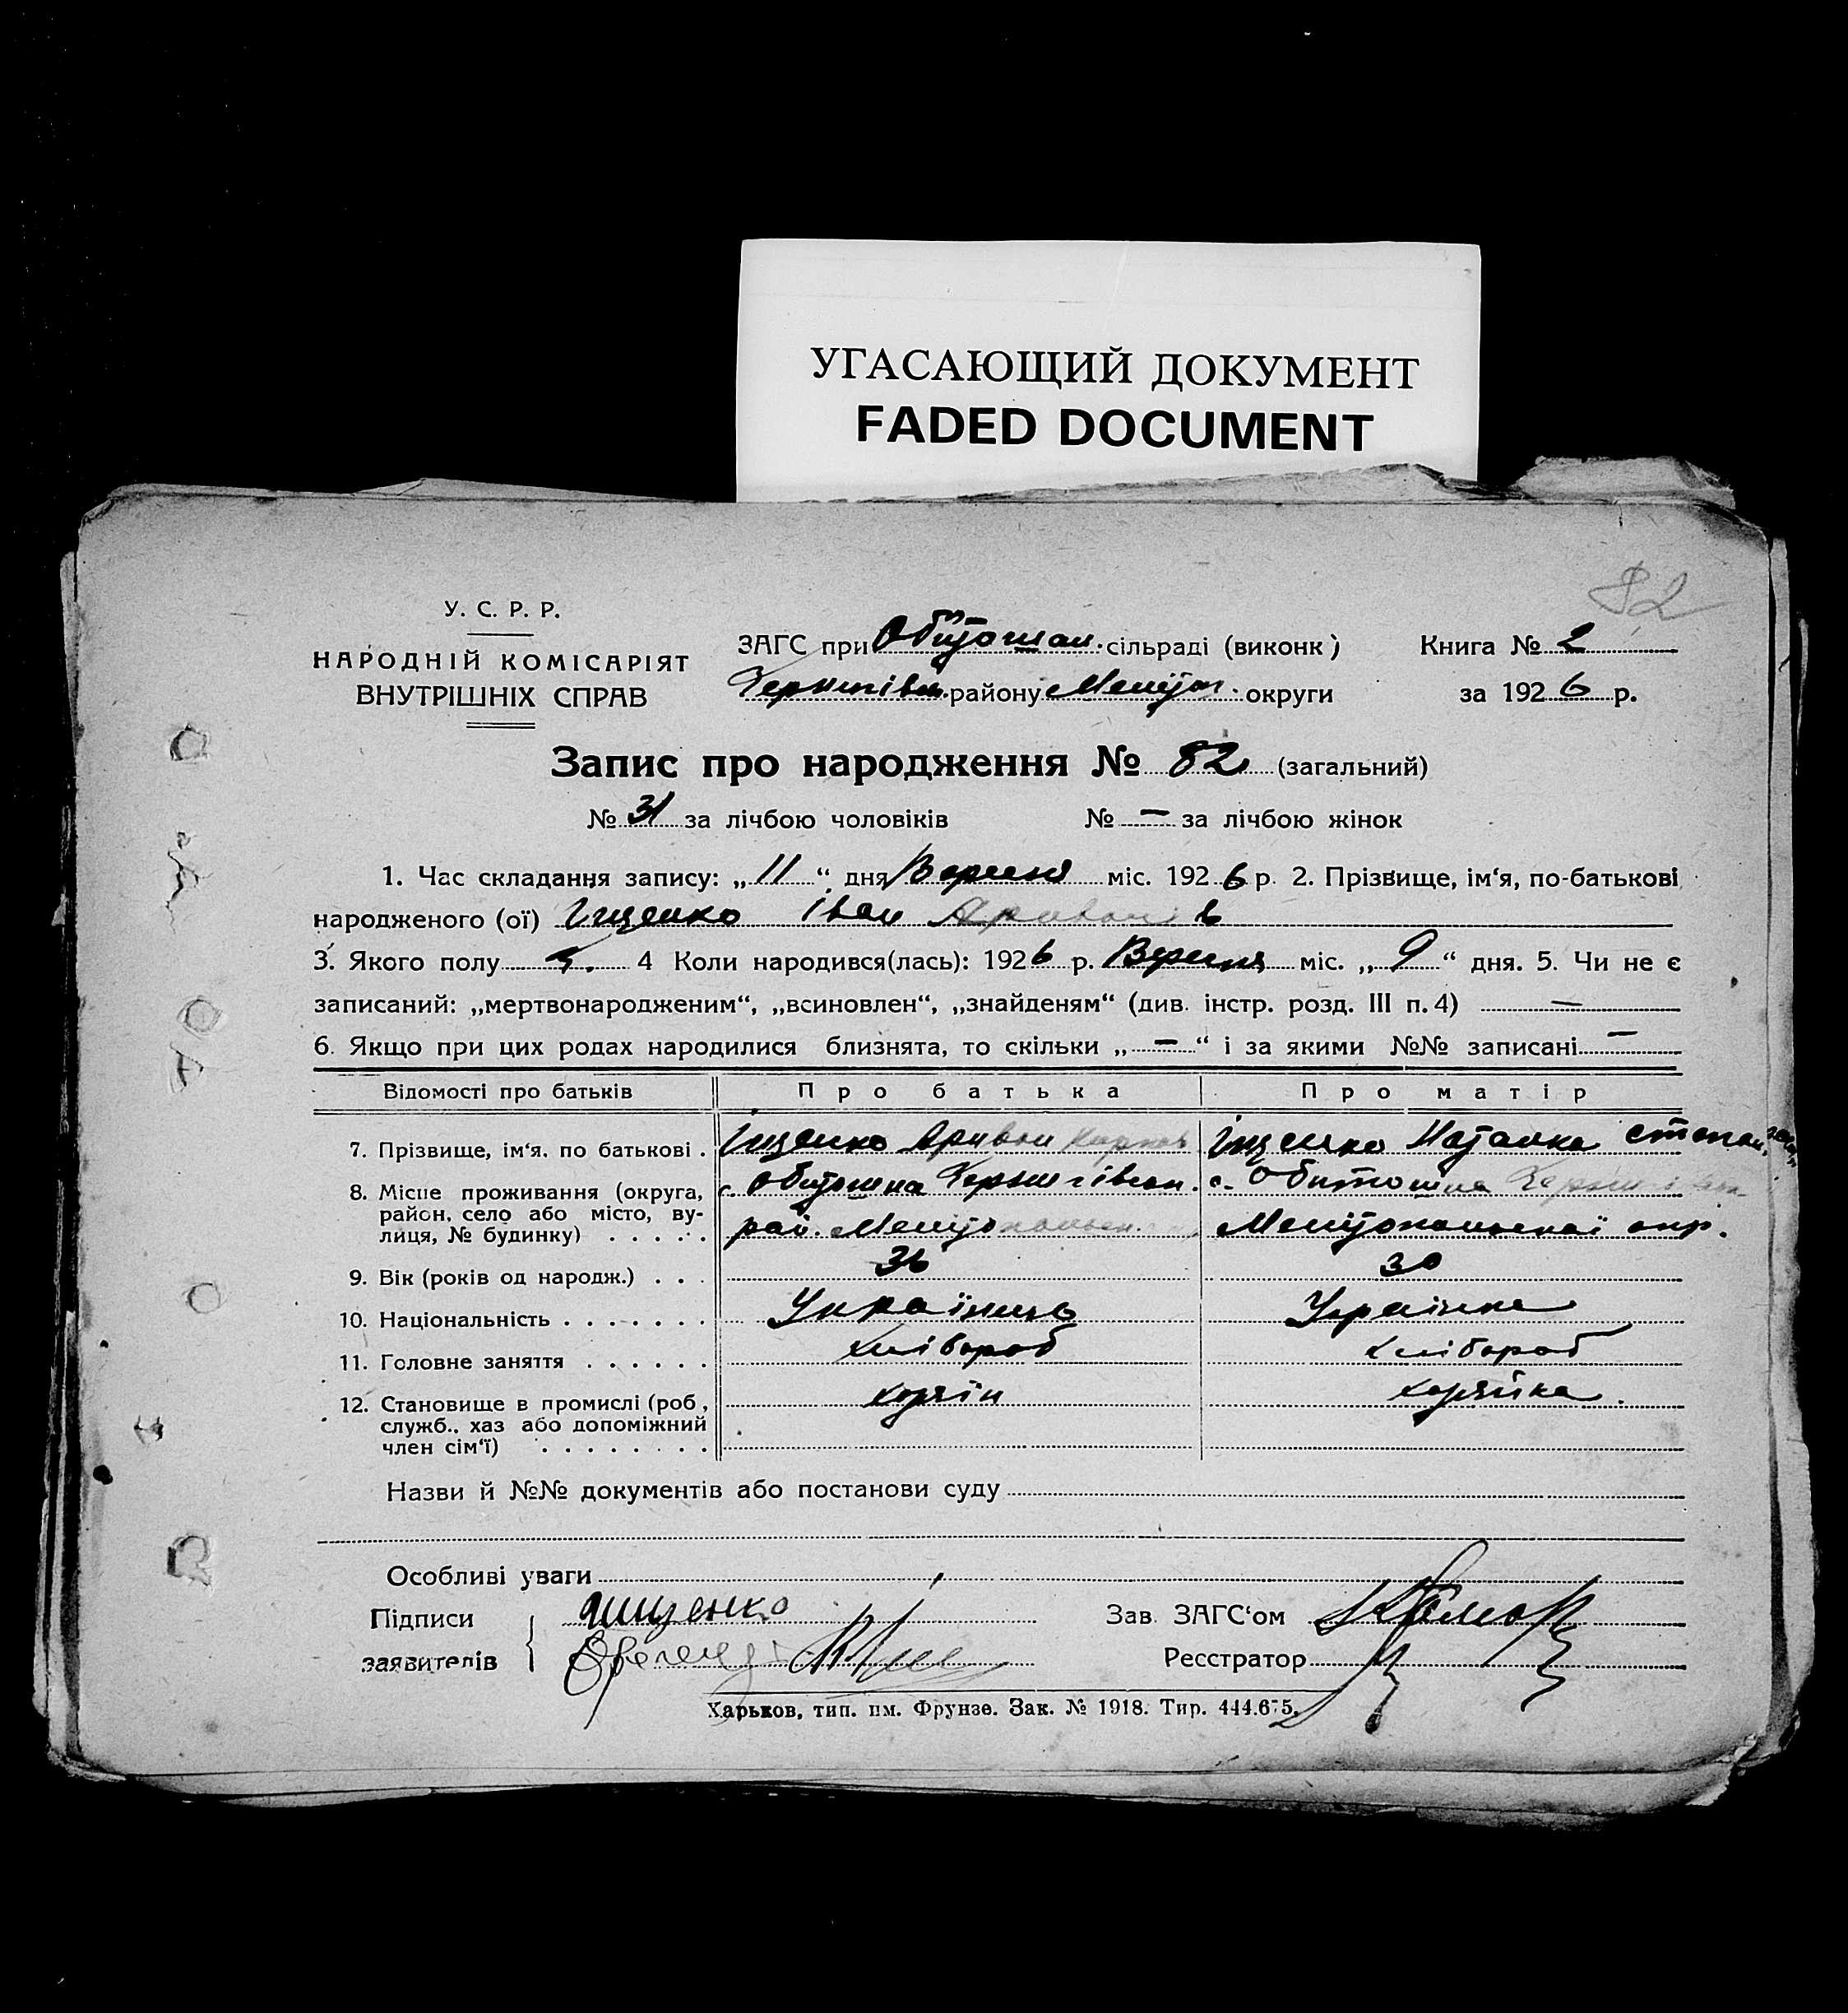 УГАСАЮЩИЙ ДОКУМЕНТ
FADED DOCUMENT
82
У. С. Р. Р.
НАРОДНІЙ КОМІСАРІЯТ
ВНУТРІШНІХ СПРАВ
ЗАГС при Обіточан. сільраді (виконк) Книга № 2
району Меліт. округи за 1926 р.
Запис про народження № 82 (загальний)
№ 31 за лічбою чоловіків № — за лічбою жінок
1. Час складання запису: „11“ дня Вересня міс. 1926 р. 2. Прізвище, ім‘я, по-батькові
народженого (ої) Іщенко Іван
3. Якого полу ч. 4 Коли народився(лась): 1926 р. Вересня міс. „9“ дня. 5. Чи не є
записаний: „мертвонародженим“, „всиновлен“, „знайденям“ (див. інстр. розд. III п. 4) —
6. Якщо при цих родах народилися близнята, то скільки „—“ і за якими №№ записані —
Відомості про батьків Про батька Про матір
7. Прізвище, ім‘я, по батькові . Іщенко Іщенко Наталка Степан
8. Місце проживання (округа, район, село або місто, вулиця, № будинку) . . . . . с. Обіточна рай. с. Обиточна Мелітопольської окр.
9. Вік (років од народж.) . . . 36 30
10. Національність . . . . . . . Українець Українка
11. Головне заняття . . . . . . хлібороб хлібороб
12. Становище в промислі (роб, служб.. хаз або допоміжний член сім‘ї) . . . . . . . . хазяїн хазяйка.
Назви й №№ документів або постанови суду
Особливі уваги
Підписи Ищенко Зав. ЗАГС‘ом
заявителів Реєстратор
Харьков, тип. им. Фрунзе. Зак. № 1918. Тир. 444.675.